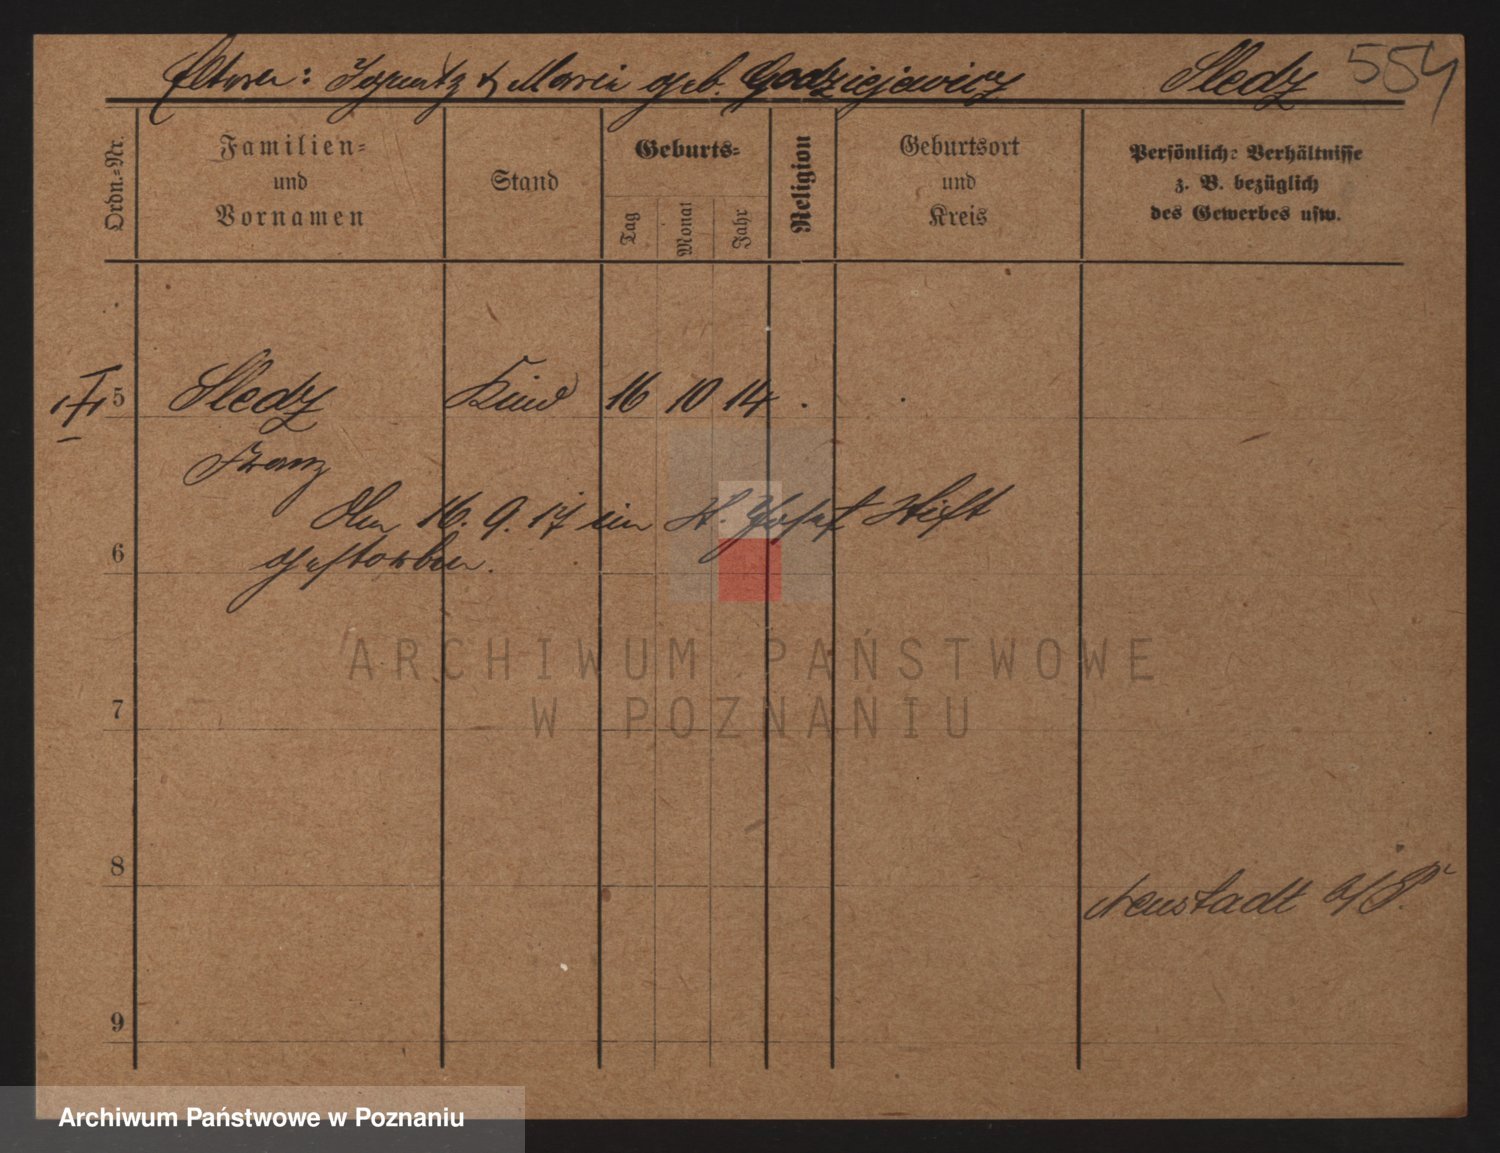 Eltern: Ignatz & Maria geb. Godziejewicz Sledz 554
Ordn.-Nr.
Familien-
und
Vornamen
Stand
Geburts-
Tag
Monat
Jahr
Religion
Geburtsort
und
Kreis
Persönliche Verhältnisse
z. B. bezüglich
des Gewerbes usw.
5 Sledz Kind 16 10 14 .
Franz
Am 16. 9. 17 im St. Josef Stift
6
gestorben.
ARCHIWUM PAŃSTWOWE
W POZNANIU
7
8
Neustadt b/P.
9
Archiwum Państwowe w Poznaniu